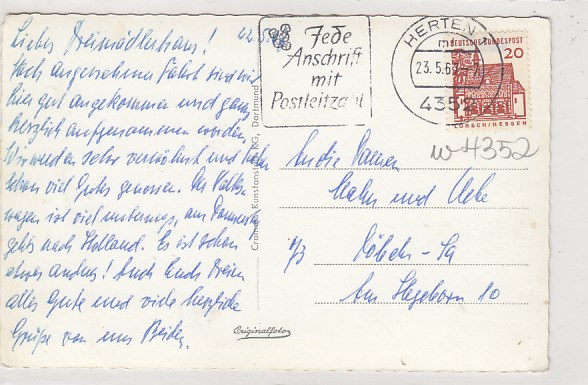 22.5.
Liebes Dreimäderlhaus!
Nach angenehmer Fahrt sind wir
hier gut angekommen und ganz
herzlich aufgenommen worden.
Wir werden sehr verwöhnt und haben
schon viel Gutes genossen. Der Volks-
wagen ist viel unterwegs, am Donnerstag
gehts nach Holland. Es ist schon
etwas anders! Euch Dreien
alles Gute und viele herzliche
Grüße von uns Beiden.
Jede
Anschrift
mit
Postleitzahl
HERTEN
23.5.67
4352
DEUTSCHE BUNDESPOST
20
LORSCH/HESSEN
W 4352
Cramers Kunstanstalt KG, Dortmund
An die Damen
und
Döbeln-
Am 10
Originalfoto